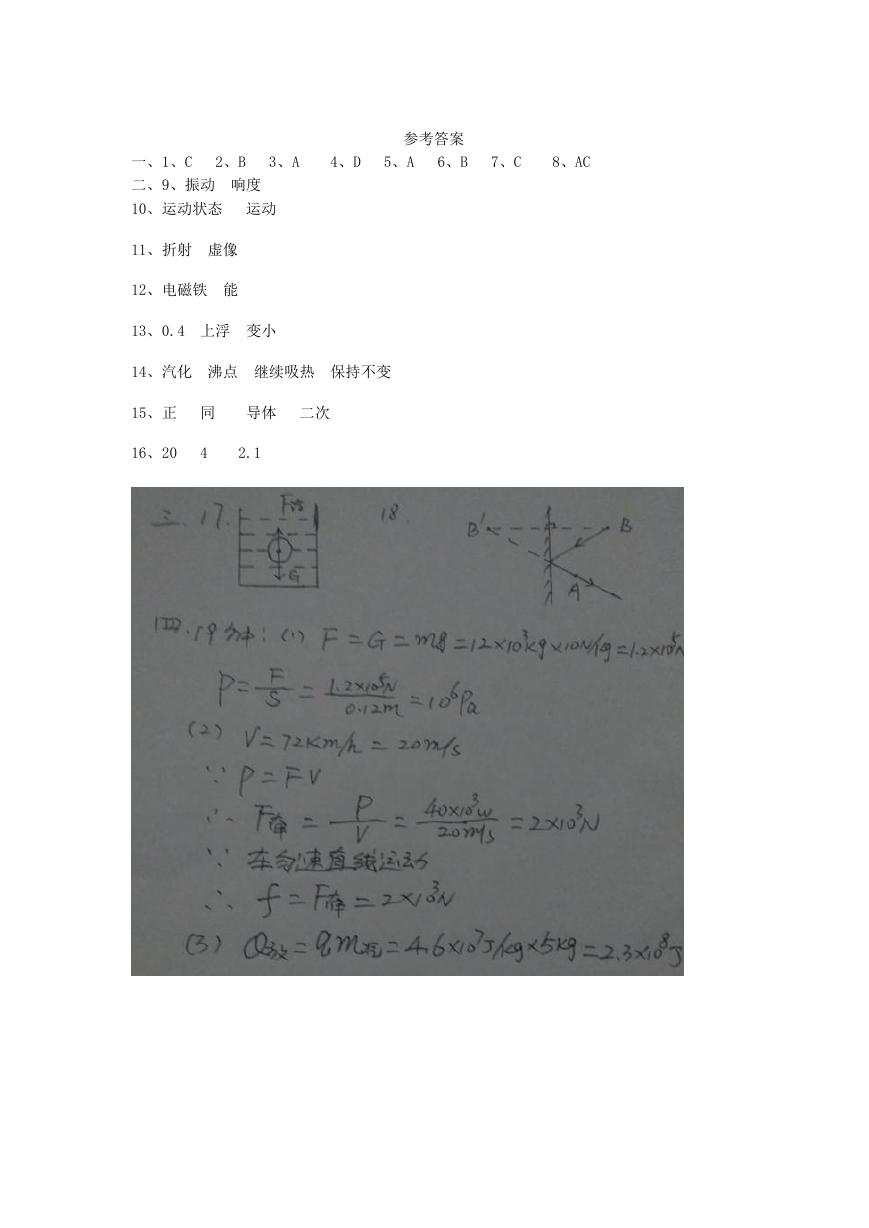 参考答案
一、1、C 2、B 3、A 4、D 5、A 6、B 7、C 8、AC
二、9、振动 响度
10、运动状态 运动
11、折射 虚像
12、电磁铁 能
13、0.4 上浮 变小
14、汽化 沸点 继续吸热 保持不变
15、正 同 导体 二次
16、20 4 2.1
三.17. F浮 G
18. B' B A
四.19解:(1) F=G=mg=12×10³kg×10N/kg=1.2×10⁵N
P=F/S=1.2×10⁵N/0.12m=10⁶Pa
(2) V=72Km/h=20m/s
∵P=FV
∴F牵=P/V=40×10³w/20m/s=2×10³N
∵车匀速直线运动
∴f=F牵=2×10³N
(3) Q放=qm=4.6×10⁷J/kg×5kg=2.3×10⁸J